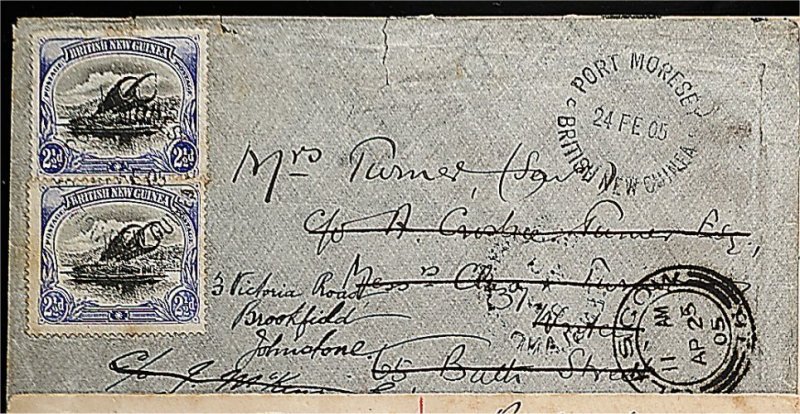 BRITISH NEW GUINEA
POSTAGE POSTAGE
2½d 2½d
BRITISH NEW GUINEA
POSTAGE POSTAGE
2½d 2½d
PORT MORESBY
24 FE 05
BRITISH NEW GUINEA
Mrs Turner, (Senr)
c/o A. Turner Esq.,
Messrs
3 Victoria Road
Brookfield
Johnstone
65 Bath Street
c/o J.
GLASGOW
11 AM
AP 25
05